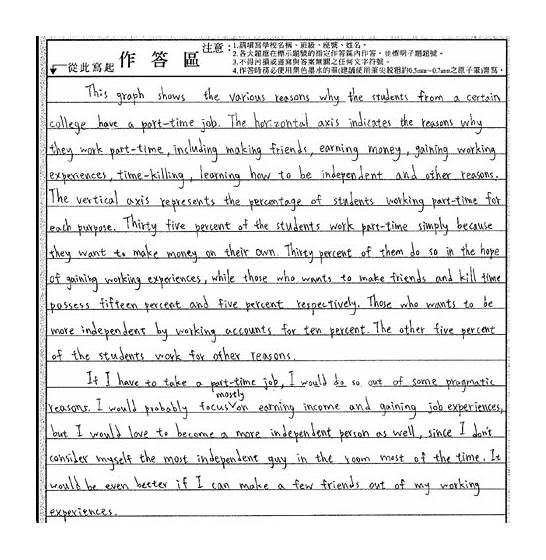 注意：1.請填寫學校名稱、班級、座號、姓名。
2.各大題應在標示題號的指定作答區內作答，並標明子題題號。
3.不得污損或書寫與答案無關之任何文字符號。
4.作答時務必使用黑色墨水的筆(建議使用筆尖較粗約0.5mm~0.7mm之原子筆)書寫。
從此寫起 作答區
This graph shows the various reasons why the students from a certain
college have a part-time job. The horizontal axis indicates the reasons why
they work part-time, including making friends, earning money, gaining working
experiences, time-killing, learning how to be independent and other reasons.
The vertical axis represents the percentage of students working part-time for
each purpose. Thirty five percent of the students work part-time simply because
they want to make money on their own. Thirty percent of them do so in the hope
of gaining working experiences, while those who wants to make friends and kill time
possess fifteen percent and five percent respectively. Those who wants to be
more independent by working accounts for ten percent. The other five percent
of the students work for other reasons.
If I have to take a part-time job, I would do so out of some pragmatic
reasons. I would probably focus mostly on earning income and gaining job experiences,
but I would love to become a more independent person as well, since I don't
consider myself the most independent guy in the room most of the time. It
would be even better if I can make a few friends out of my working
experiences.